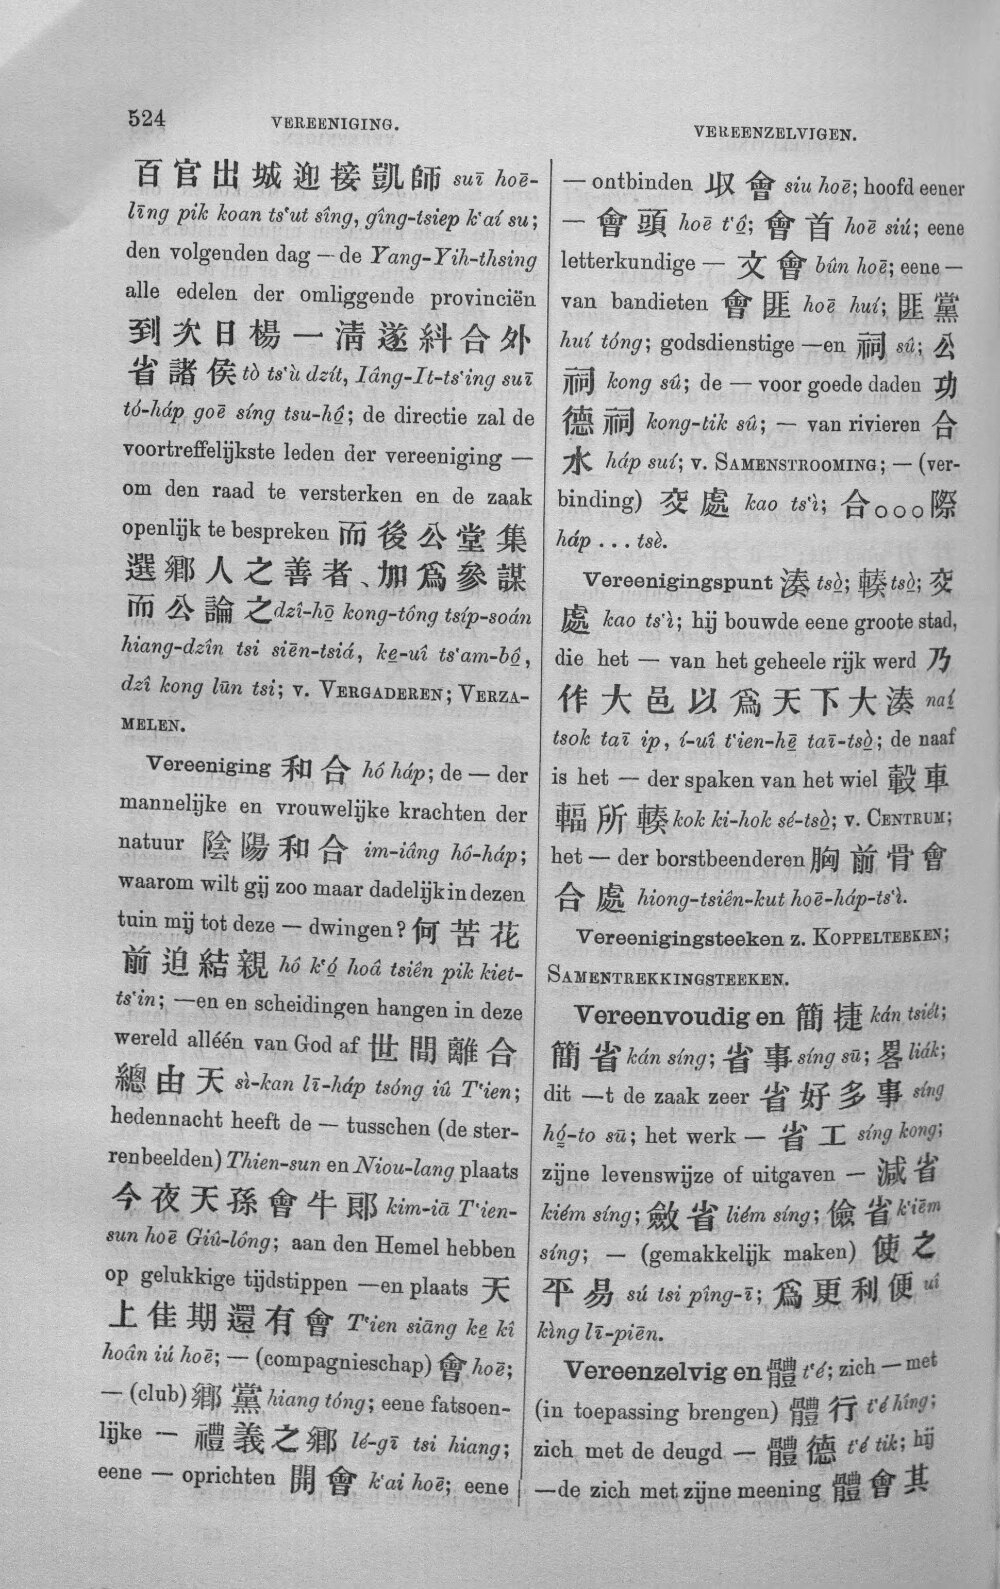 524
VEREENIGING.
VEREENZELVIGEN.
百官出城迎接凱師 suī hoē-
līng pik koan ts‘ut sîng, gîng-tsiep k‘aí su;
den volgenden dag — de Yang-Yih-thsing
alle edelen der omliggende provinciën
到次日楊一淸遂糾合外
省諸侯 tò ts‘ù dzít, Iâng-It-ts‘ing suī
tó-háp goē síng tsu-hô̤; de directie zal de
voortreffelijkste leden der vereeniging —
om den raad te versterken en de zaak
openlijk te bespreken 而後公堂集
選鄉人之善者、加爲參謀
而公論之 dzî-hō̤ kong-tông tsíp-soán
hiang-dzîn tsi siēn-tsiá, ke̤-uî ts‘am-bô̤,
dzî kong lūn tsi; v. VERGADEREN; VERZA-
MELEN.
Vereeniging 和合 hô háp; de — der
mannelijke en vrouwelijke krachten der
natuur 陰陽和合 im-iâng hô-háp;
waarom wilt gij zoo maar dadelijk in dezen
tuin mij tot deze — dwingen? 何苦花
前迫結親 hô k‘ó̤ hoâ tsiên pik kiet-
ts‘in; —en en scheidingen hangen in deze
wereld alléén van God af 世間離合
總由天 sì-kan lī-háp tsóng iû T‘ien;
hedennacht heeft de — tusschen (de ster-
renbeelden) Thien-sun en Niou-lang plaats
今夜天孫會牛郎 kim-iā T‘ien-
sun hoē Giû-lông; aan den Hemel hebben
op gelukkige tijdstippen —en plaats 天
上佳期還有會 T‘ien siāng ke̤ kî
hoân iú hoē; — (compagnieschap) 會 hoē;
— (club) 鄉黨 hiang tóng; eene fatsoen-
lijke — 禮義之鄉 lé-gī tsi hiang;
eene — oprichten 開會 k‘ai hoē; eene
— ontbinden 收會 siu hoē; hoofd eener
— 會頭 hoē t‘ô̤; 會首 hoē siú; eene
letterkundige — 文會 bûn hoē; eene —
van bandieten 會匪 hoē huí; 匪黨
huí tóng; godsdienstige —en 祠 sû; 公
祠 kong sû; de — voor goede daden 功
德祠 kong-tik sû; — van rivieren 合
水 háp suí; v. SAMENSTROOMING; — (ver-
binding) 交處 kao ts‘ì; 合○○○際
háp . . . tsè.
Vereenigingspunt 湊 tsò̤; 輳 tsò̤; 交
處 kao ts‘ì; hij bouwde eene groote stad,
die het — van het geheele rijk werd 乃
作大邑以爲天下大湊 naí
tsok taī ip, í-uî t‘ien-hē̤ taī-tsò̤; de naaf
is het — der spaken van het wiel 轂車
輻所輳 kok ki-hok sé-tsò̤; v. CENTRUM;
het — der borstbeenderen 胸前骨會
合處 hiong-tsiên-kut hoē-háp-ts‘ì.
Vereenigingsteeken z. KOPPELTEEKEN;
SAMENTREKKINGSTEEKEN.
Vereenvoudigen 簡捷 kán tsiét;
簡省 kán síng; 省事 síng sū; 畧 liák;
dit —t de zaak zeer 省好多事 síng
hó̤-to sū; het werk — 省工 síng kong;
zijne levenswijze of uitgaven — 減省
kiém síng; 斂省 liém síng; 儉省 k‘iēm
síng; — (gemakkelijk maken) 使之
平易 sú tsi pîng-ī; 爲更利便 uî
kìng lī-piēn.
Vereenzelvigen 體 t‘é; zich — met
(in toepassing brengen) 體行 t‘é híng;
zich met de deugd — 體德 t‘é tik; hij
—de zich met zijne meening 體會其